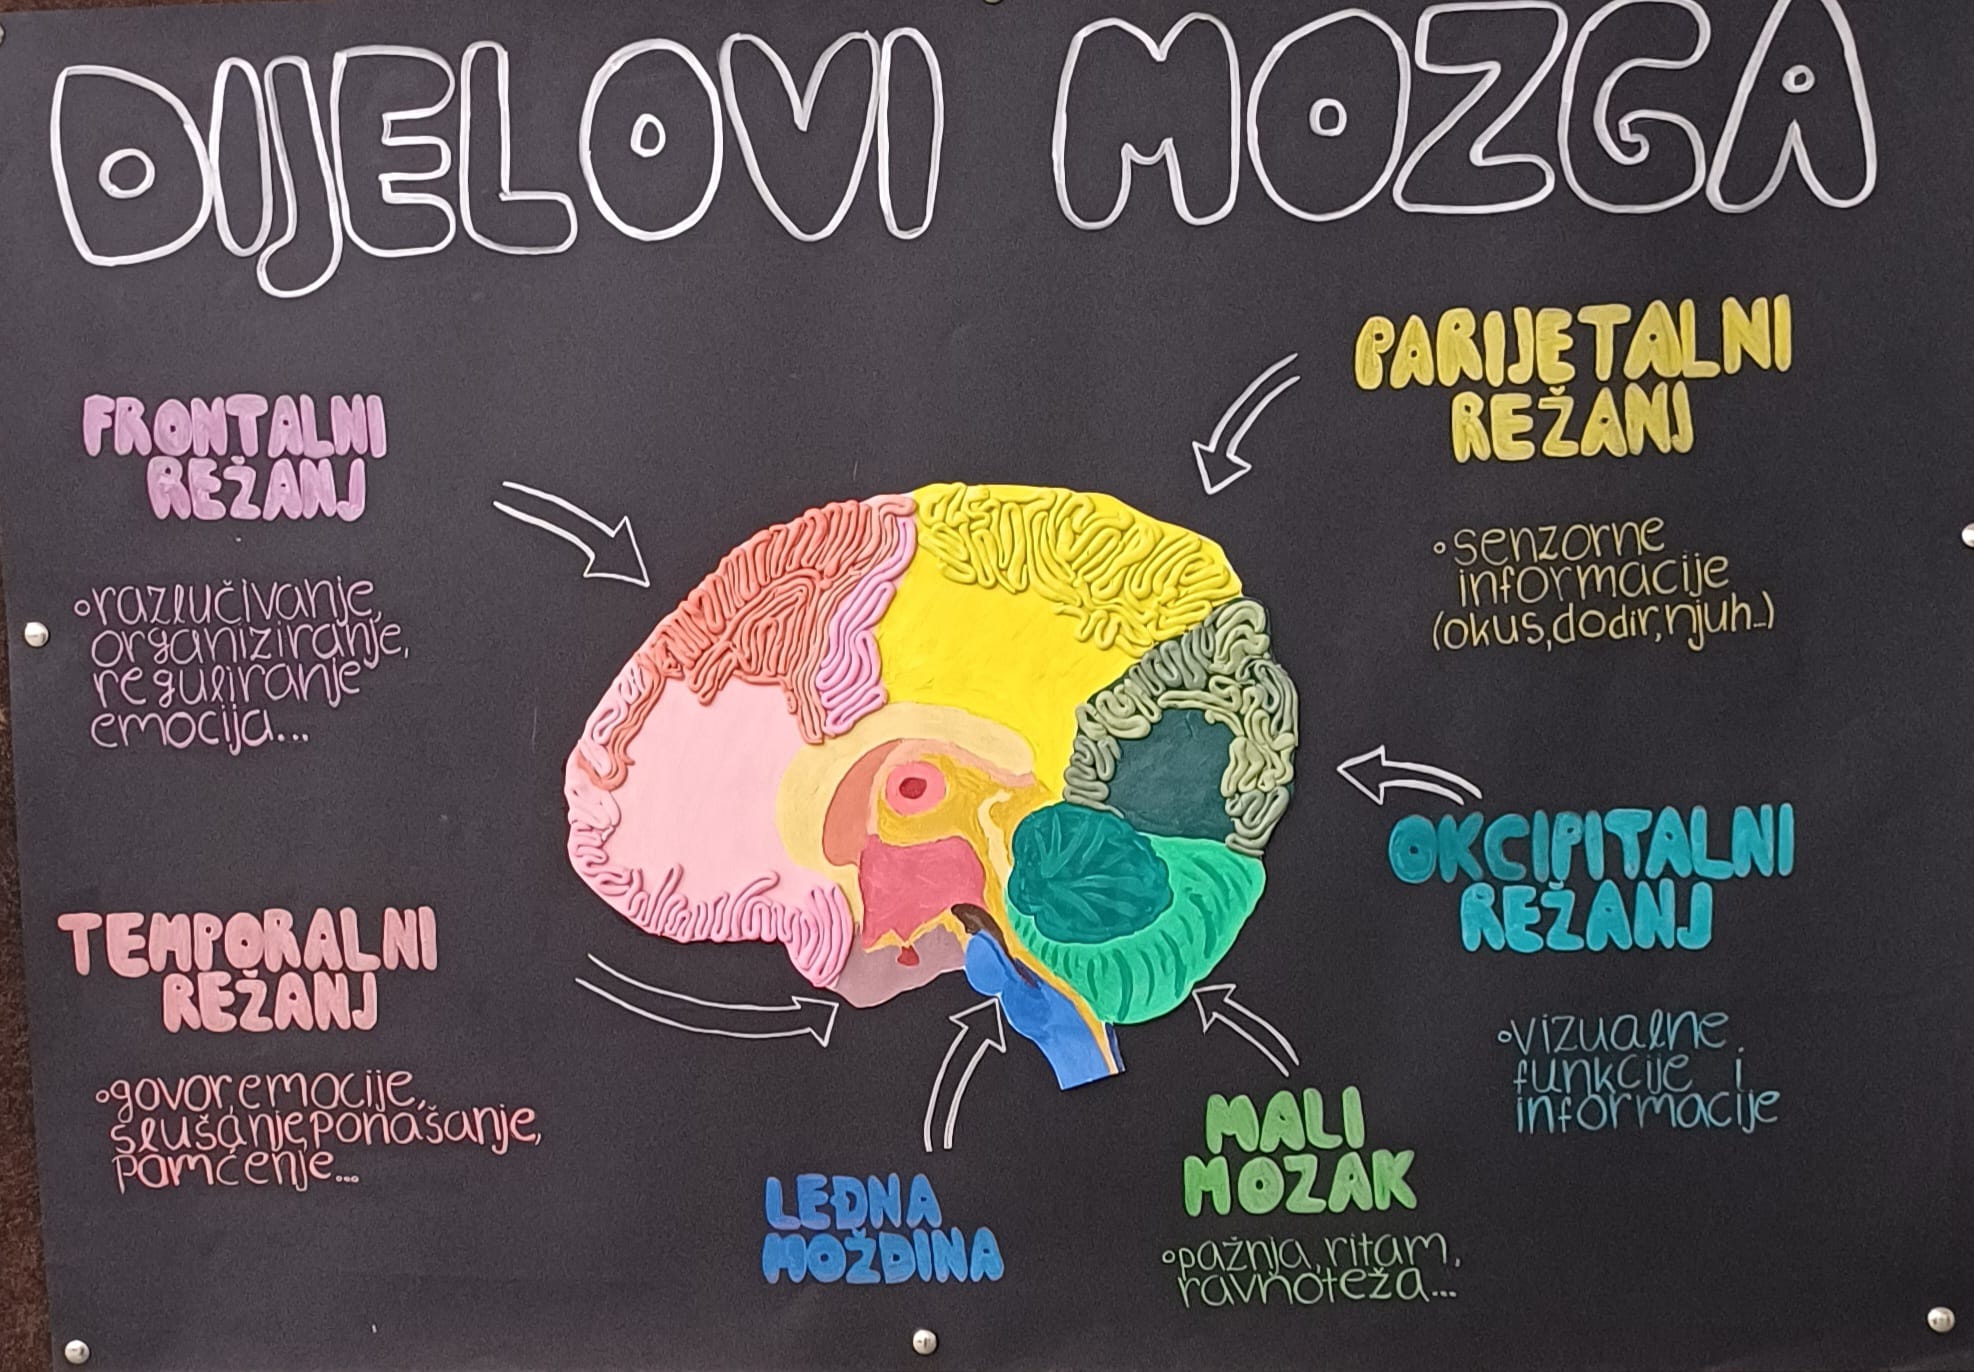 DIJELOVI MOZGA
FRONTALNI
REŽANJ
razlučivanje,
organiziranje,
reguliranje
emocija...
TEMPORALNI
REŽANJ
govor, emocije,
slušanje, ponašanje,
pamćenje...
LEĐNA
MOŽDINA
MALI
MOZAK
pažnja, ritam,
ravnoteža...
PARIJETALNI
REŽANJ
senzorne
informacije
(okus, dodir, njuh...)
OKCIPITALNI
REŽANJ
vizualne
funkcije i
informacije